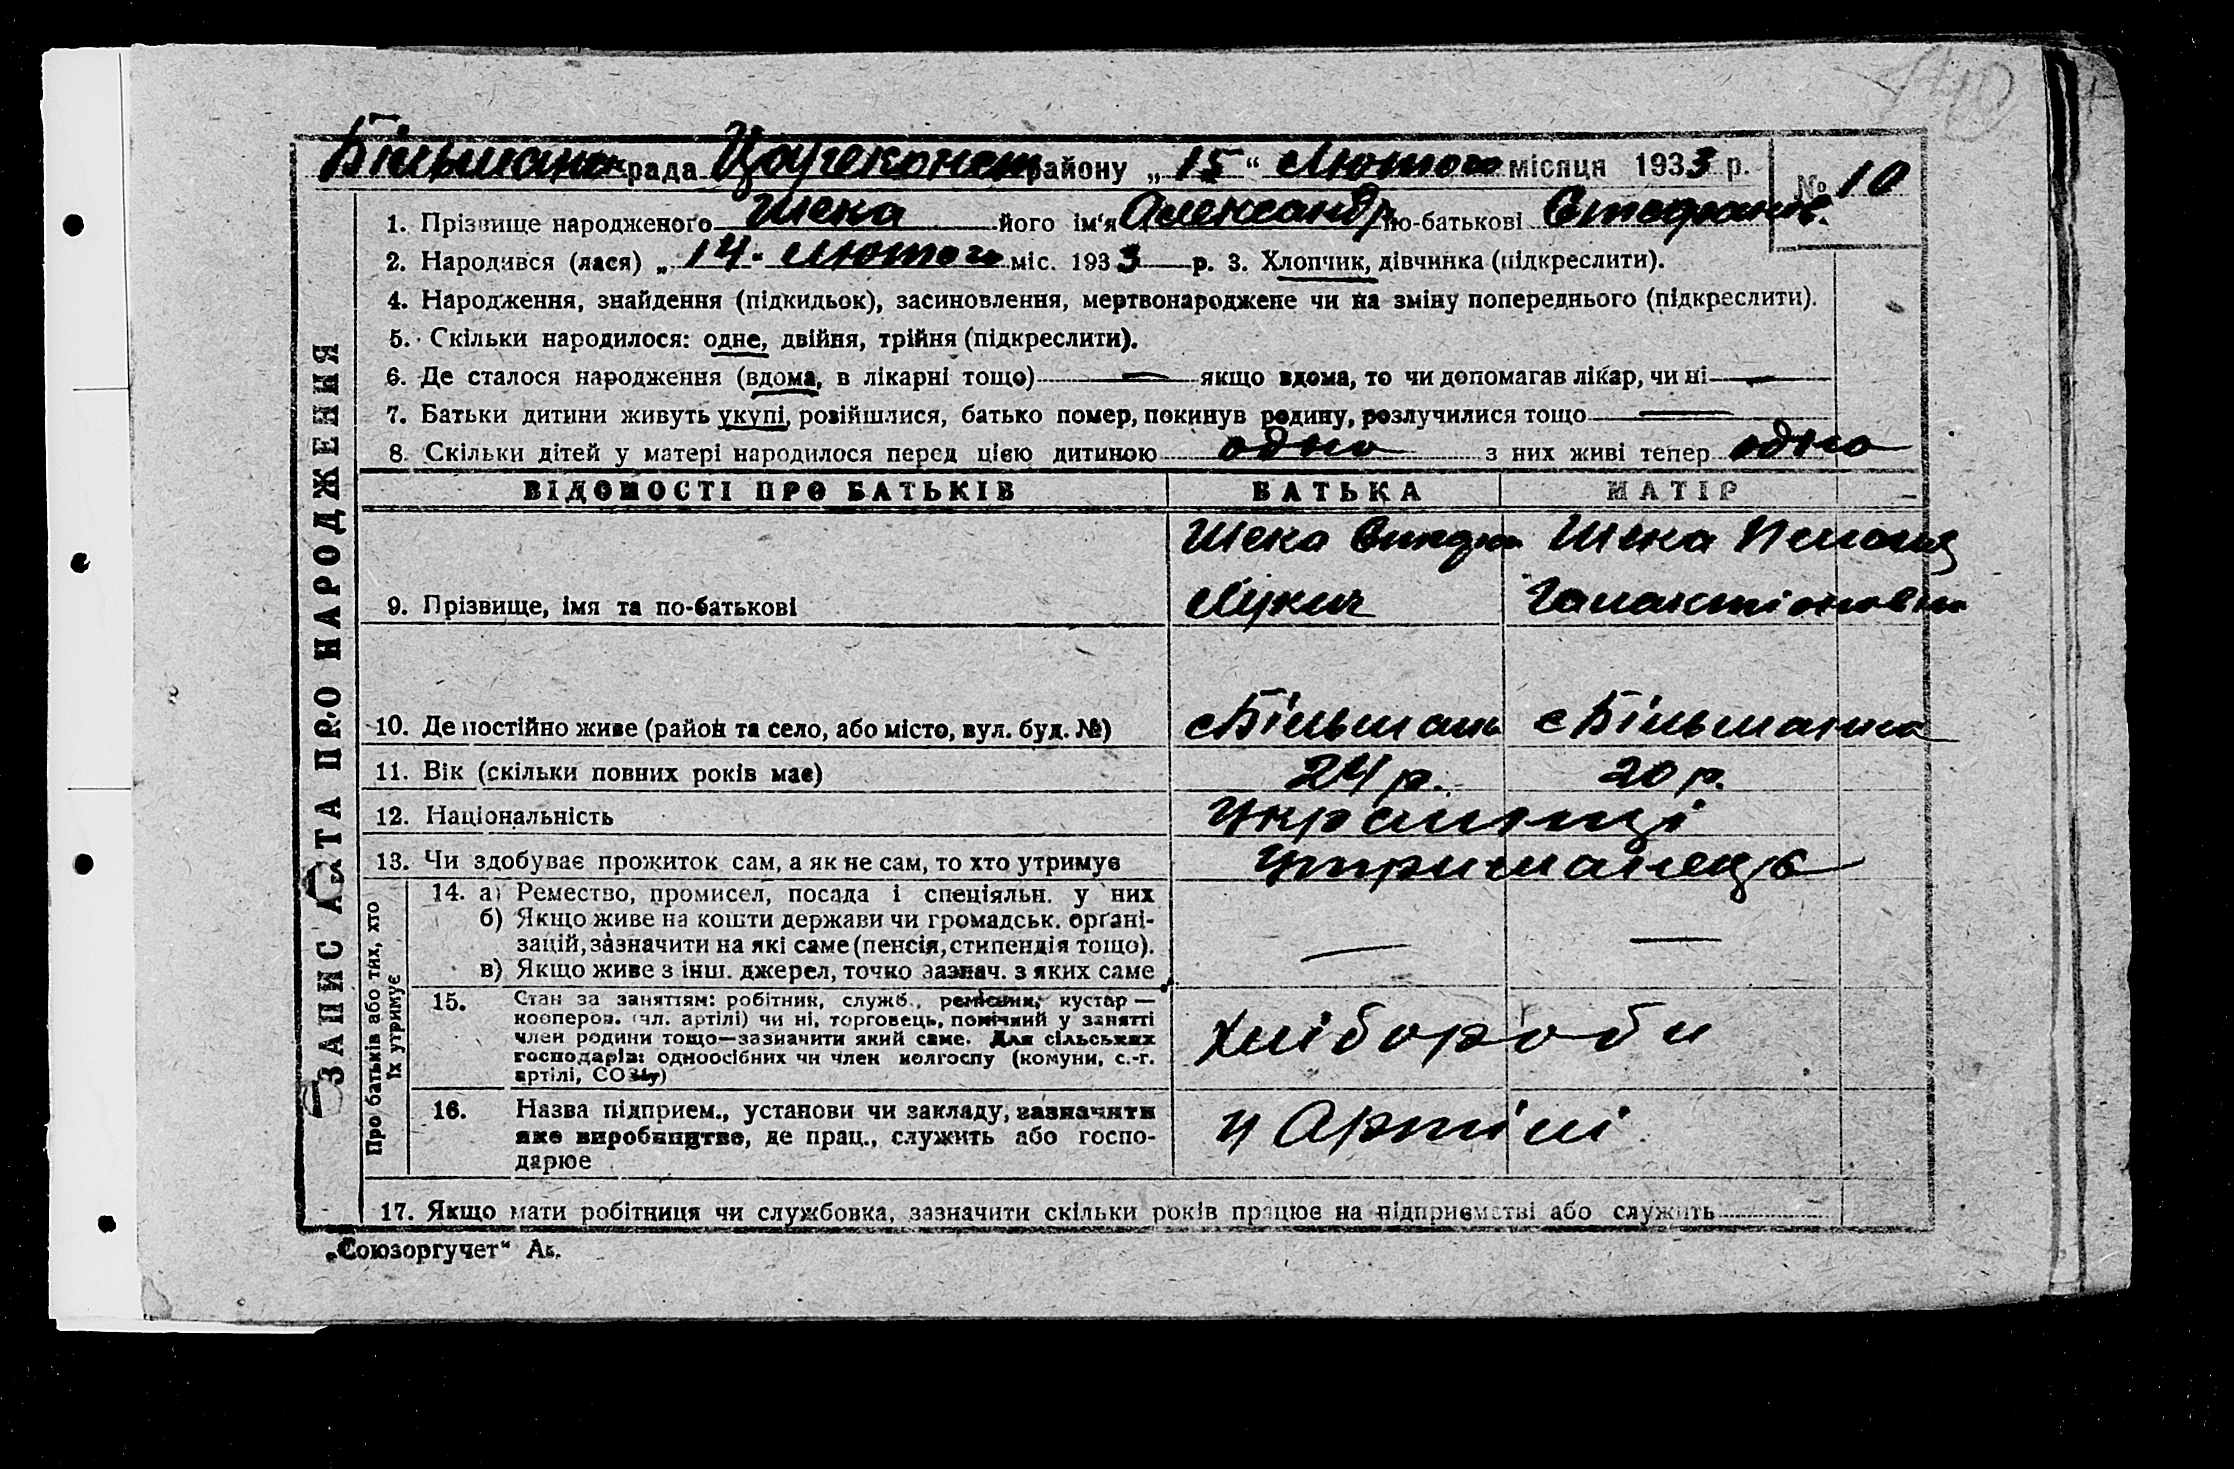 140
Більманск рада Царекон­стан району „15“ Лютого місяця 1933 р. № 10
1. Прізвище народженого Шека його ім'я Александр по-батькові Стефанов.
2. Народився (лася) „14“ лютого міс. 1933 р. 3. Хлопчик, дівчинка (підкреслити).
4. Народження, знайдення (підкидьок), засиновлення, мертвонароджене чи на зміну попереднього (підкреслити).
5. Скільки народилося: одне, двійня, трійня (підкреслити).
6. Де сталося народження (вдома, в лікарні тощо) — якщо вдома, то чи допомагав лікар, чи ні —
7. Батьки дитини живуть укупі, розійшлися, батько помер, покинув родину, розлучилися тощо —
8. Скільки дітей у матері народилося перед цією дитиною одно з них живі тепер одно
ЗАПИС АКТА ПРО НАРОДЖЕННЯ
ВІДОМОСТІ ПРО БАТЬКІВ БАТЬКА МАТІР
Шека Шека
9. Прізвище, імя та по-батькові Лукич Галактіоновна
10. Де постійно живе (район та село, або місто, вул. буд. №) с Більманка с Більманка
11. Вік (скільки повних років має) 24 р. 20 р.
12. Національність Українці
13. Чи здобуває прожиток сам, а як не сам, то хто утримує утриманець
Про батьків або тих, хто їх утримує
14. а) Ремество, промисел, посада і спеціяльн. у них
б) Якщо живе на кошти держави чи громадськ. органі-
зацій, зазначити на які саме (пенсія, стипендія тощо).
в) Якщо живе з інш. джерел, точно зазнач. з яких саме — —
15. Стан за заняттям: робітник, служб., ремісник, кустар —
кооперов. (чл. артілі) чи ні, торговець, помічний у занятті
член родини тощо—зазначити який саме. Для сільських
господарів: одноосібних чи член колгоспу (комуни, с.-г.
артілі, СОЗу) Хлібороби
16. Назва підприєм., установи чи закладу, зазначити
яке виробництво, де прац., служить або госпо-
дарює у Артілі
17. Якщо мати робітниця чи службовка, зазначити скільки років працює на підприємстві або служить
„Союзоргучет“